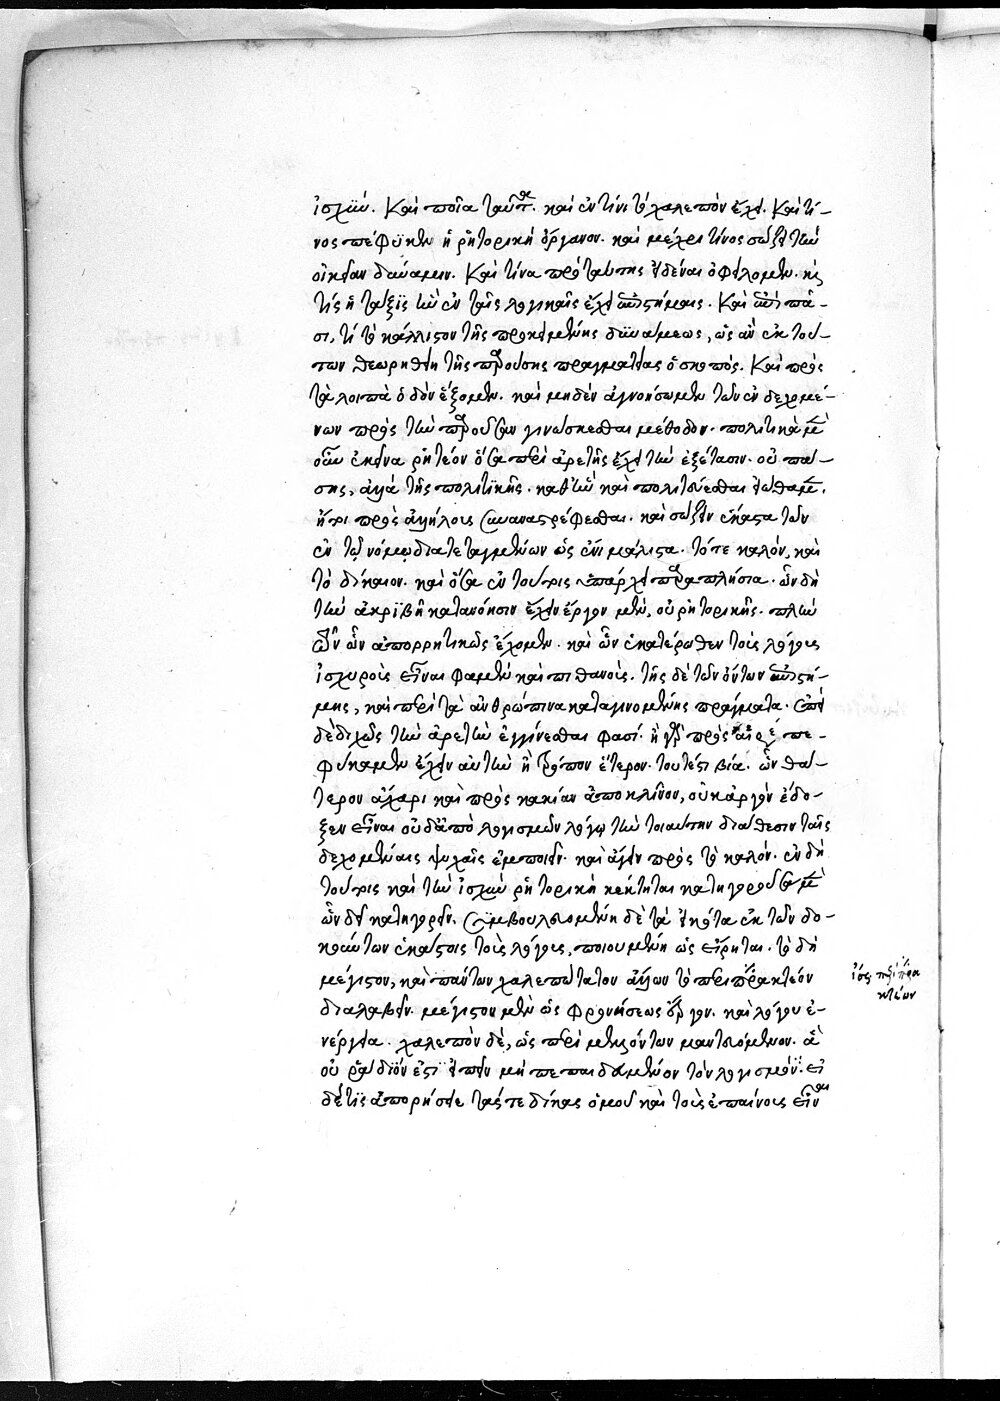 ἰσχύν. Καὶ ποῖα ταῦτα. καὶ ἐν τίνι τὸ χαλεπὸν ἔχει. Καὶ τί-
νος πέφυκεν ἡ ῥητορικὴ ὄργανον. καὶ μέχρι τίνος σώζει τὴν
οἰκείαν δύναμιν. Καὶ τίνα πρὸ ταύτης εἰδέναι ὀφείλομεν. καὶ
τίς ἡ τάξις ἣν ἐν ταῖς λογικαῖς ἔχει ἐπιστήμαις. Καὶ ἐπὶ πᾶ-
σι, τί τὸ κάλλιστον τῆς προκειμένης δυνάμεως, ὡς ἂν ἐκ τού-
των θεωρηθείη τῆς παρούσης πραγματείας ὁ σκοπός. Καὶ πρὸς
τὰ λοιπὰ ὁδὸν ἕξομεν. καὶ μηδὲν ἀγνοήσωμεν τῶν ἐνδεχομέ-
νων πρὸς τὴν παροῦσαν γινώσκεσθαι μέθοδον. πολιτικὰ μὲν
οὖν ἐκεῖνα ῥητέον ὅσα περὶ ἀρετῆς ἔχει τὴν ἐξέτασιν. οὐ πά-
σης, ἀλλὰ τῆς πολιτικῆς. καθ' ἣν καὶ πολιτεύεσθαι εἰώθαμεν.
ἤτοι πρὸς ἀλλήλους συναναστρέφεσθαι. καὶ σώζειν ἕκαστα τῶν
ἐν τῷ νόμῳ διατεταγμένων ὡς ἔνι μάλιστα. τό τε καλόν, καὶ
τὸ δίκαιον. καὶ ὅσα ἐν τούτοις ὑπάρχει παραπλήσια. ὧν δὴ
τὴν ἀκριβῆ κατανόησιν ἔχειν ἔργον μὲν, οὐ ῥητορικῆς. πλὴν
ὧν ἀπορρητικῶς ἔχομεν. καὶ ὧν ἑκατέρωθεν τοὺς λόγους
ἰσχυροὺς εἶναι φαμὲν καὶ πιθανούς. τῆς δὲ τῶν ὄντων ἐπιστή-
μης, καὶ περὶ τὰ ἀνθρώπινα καταγινομένης πράγματα. ἐπεὶ
δὲ διχῶς τὴν ἀρετὴν ἐγγίνεσθαι φασί. ἢ γὰρ πρὸς πε-
φύκαμεν ἔχειν αὐτὴν ἢ τρόπον ἕτερον. τουτέστι βίᾳ. ὧν θά-
τερον ἄχαρι καὶ πρὸς κακίαν ἀποκλῖνον, οὐκ ἀργὸν ἔδο-
ξεν εἶναι οὐδ' ἀπὸ λογισμῶν λόγῳ τὴν τοιαύτην διάθεσιν ταῖς
δεχομέναις ψυχαῖς ἐμποιεῖν. καὶ ἄγειν πρὸς τὸ καλόν. ἐν δὴ
τούτοις καὶ τὴν ἰσχὺν ῥητορικὴ κέκτηται κατηγοροῦσα μὲν
ὧν δεῖ κατηγορεῖν. συμβουλευομένη δὲ τὰ εἰκότα ἐκ τῶν δο-
κούντων ἑκάστοις τοὺς λόγους, ποιουμένη ὡς εἴρηται. τὸ δὴ
μέγιστον, καὶ πάντων χαλεπώτατον ἄλλων τὸ περὶ πρακτέον
διαλαβεῖν. μέγιστον μὲν ὡς φρονήσεως ἔργον. καὶ λόγου ἐ-
νέργεια. χαλεπὸν δέ, ὡς περὶ μελλόντων μαντευόμενον. ἃ
οὐ ῥάδιόν ἐστι εἰπεῖν μὴ πεπαιδευμένον τὸν λογισμόν. εἰ
δέ τις ἀπορήσειε τάς τε δίκας ὁμοῦ καὶ τοὺς ἐπαίνους εἶναι